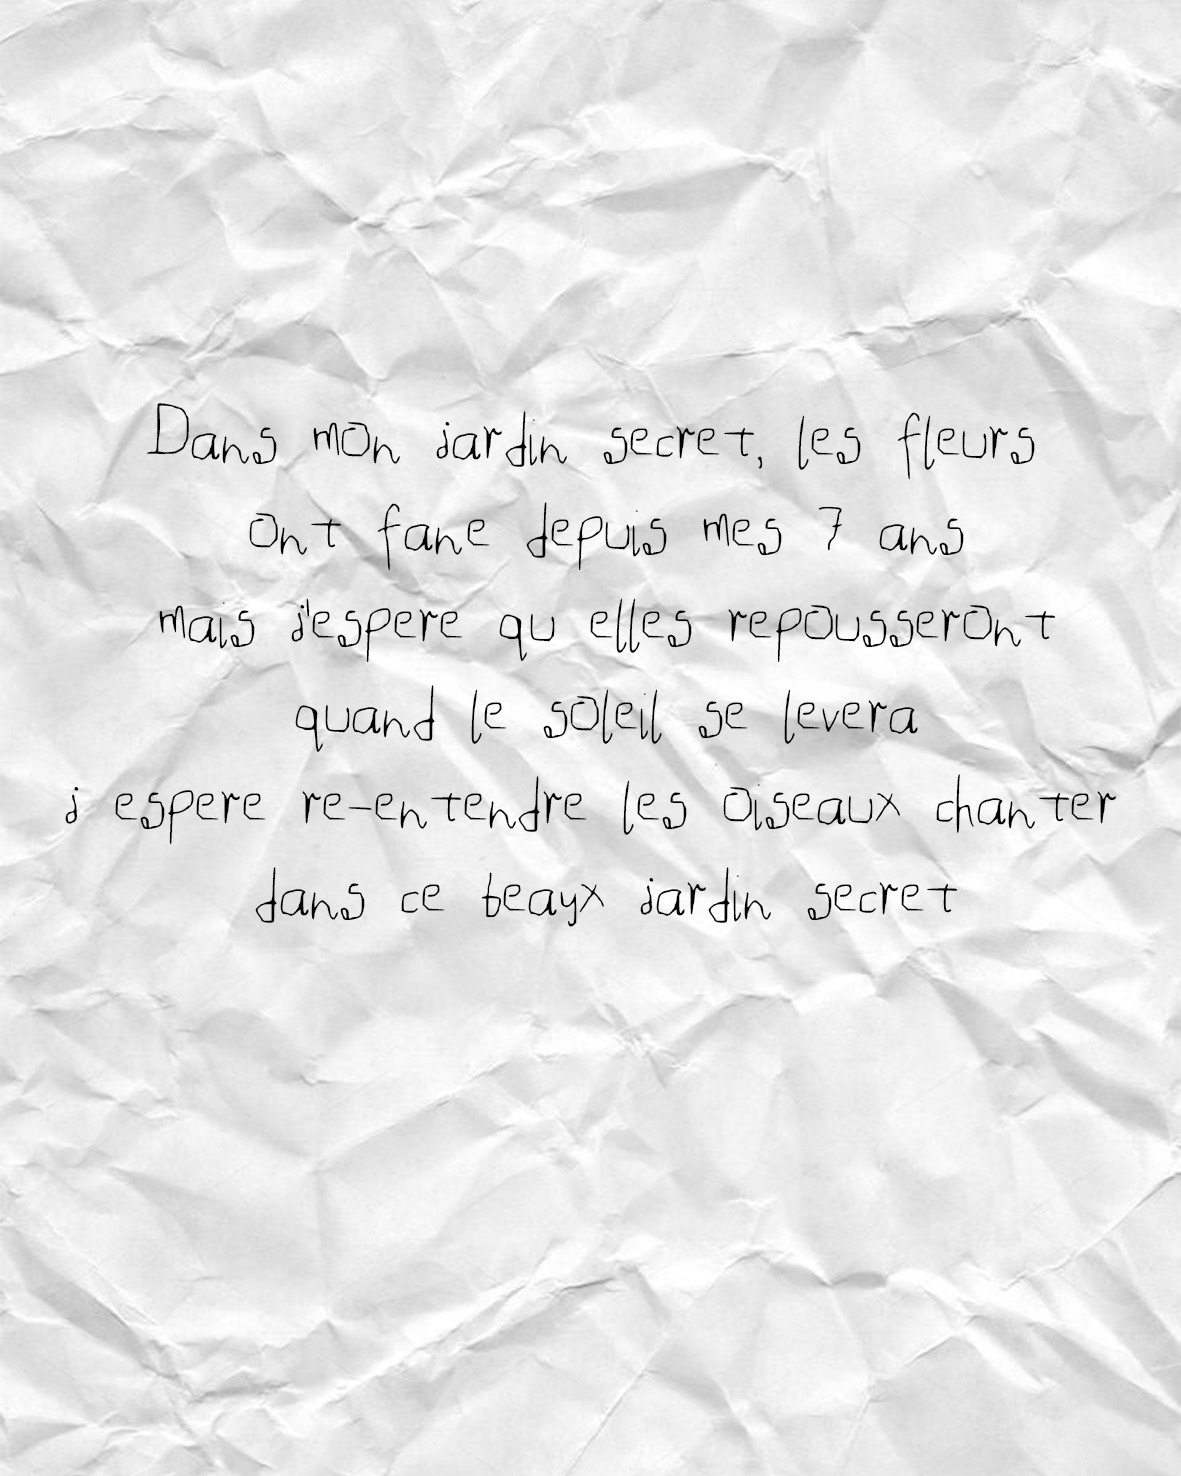 Dans mon jardin secret, les fleurs
ont fane depuis mes 7 ans
mais j'espere qu elles repousseront
quand le soleil se levera
j espere re-entendre les oiseaux chanter
dans ce beayx jardin secret